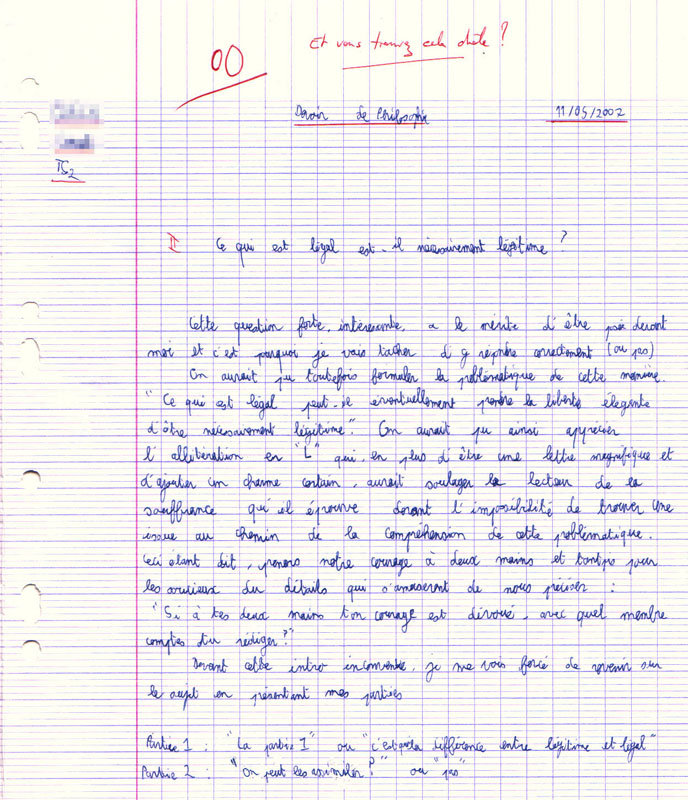 Et vous trouvez cela drôle ?
00
Devoir de Philosophie
11/05/2007
TS2
II Ce qui est légal est-il nécessairement légitime ?
Cette question forte, intéressante, a le mérite d'être posée devant
moi et c'est pourquoi je vais tacher d'y répndre correctement (ou pas)
On aurait pu toutefois formuler la problématique de cette manière.
"Ce qui est légal peut-il éventuellement prendre la liberté élégante
d'être nécessairement légitime". On aurait pu ainsi apprécier
l'allitération en "L" qui, en plus d'être une lettre magnifique et
d'ajouter un charme certain, aurait soulager le lecteur de la
souffrance qu'il éprouve devant l'impossibilité de trouver une
issue au chemin de la compréhension de cette problématique.
Ceci étant dit, prenons notre courage à deux mains et tantpis pour
les soucieux du détails qui s'amuseront de nous préciser :
"Si à tes deux mains ton courage est dévoué, avec quel membre
comptes d'tu rédiger ?"
Devant cette intro incomventée, je me vois forcé de revenir sur
le sujet en présentant mes parties
Partie 1 : "La partie 1" ou "c'est quoi la différence entre légitime et légal"
Partie 2 : "On peut les assimiler ?" ou "pas"